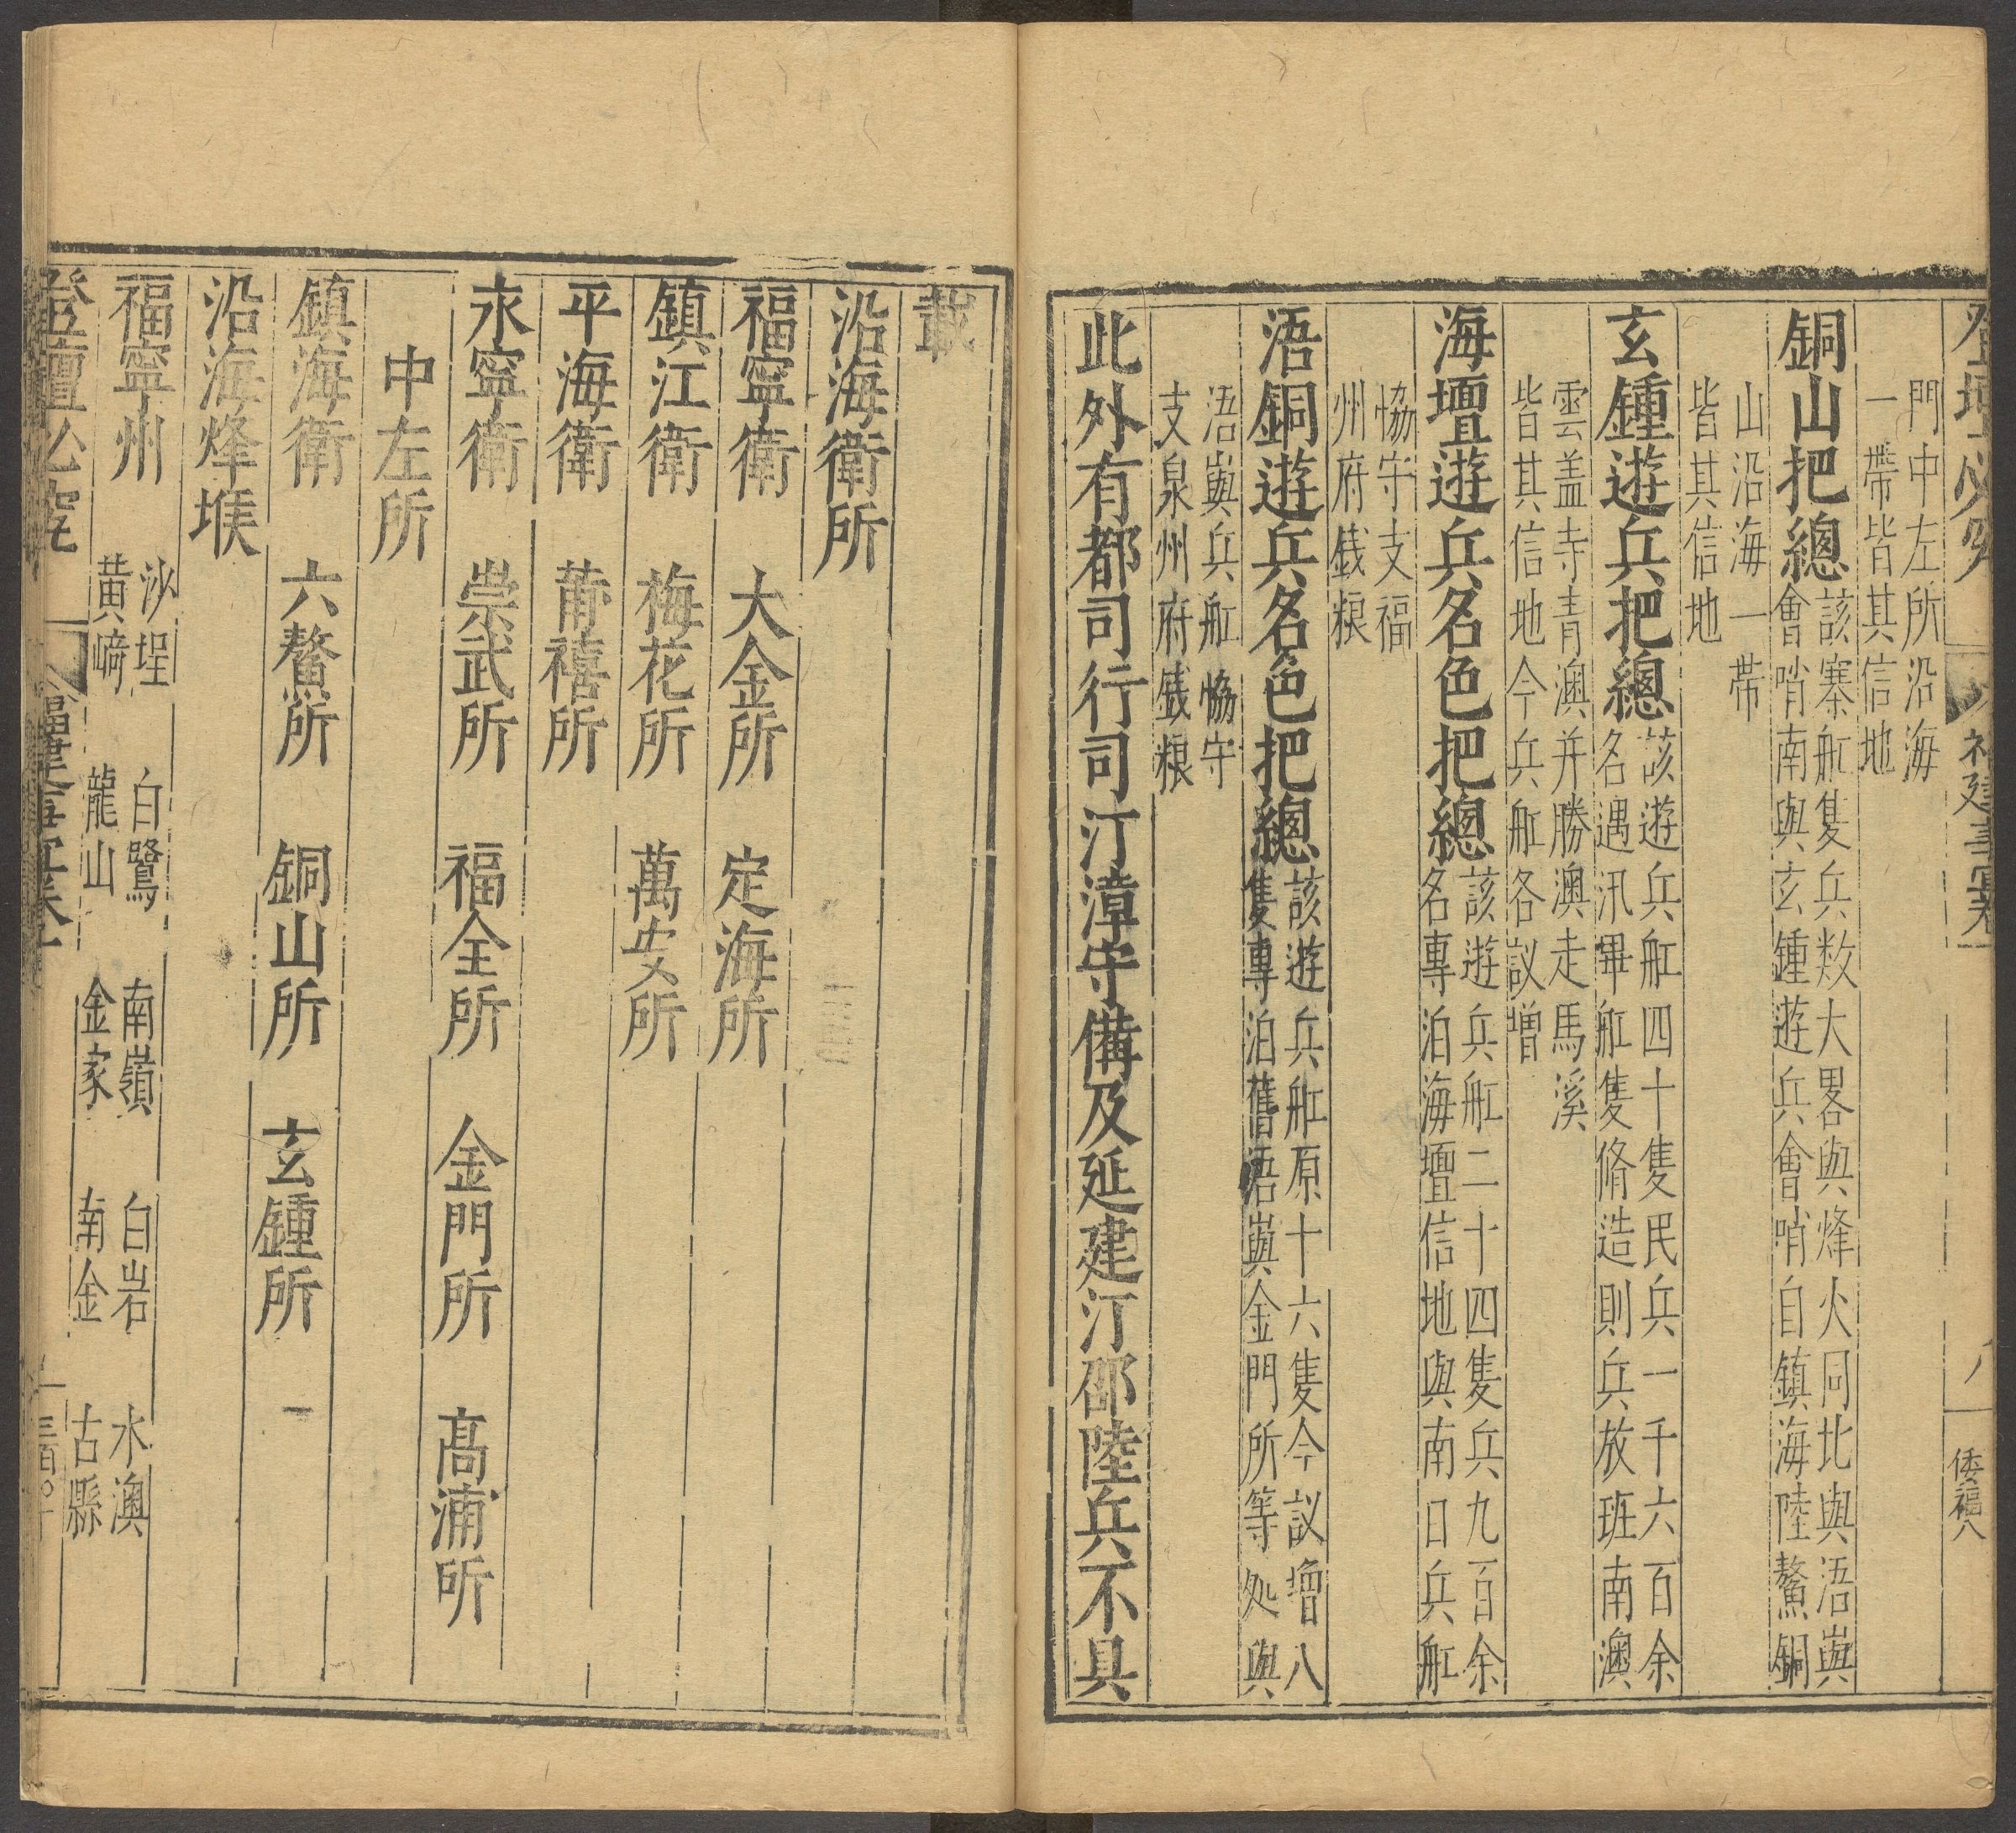 門中左所沿海
一帶皆其信地
銅山把總該寨舡隻兵数大畧與烽火同北與浯嶼
會哨南與玄鍾遊兵會哨自鎮海陸鰲銅
山沿海一帶
皆其信地
玄鍾遊兵把總該遊兵舡四十隻民兵一千六百余
名遇汛畢舡隻脩造則兵放班南澳
雲盖寺青澳并勝澳走馬溪
皆其信地今兵舡各議增
海壇遊兵名色把總該遊兵舡二十四隻兵九百余
名專泊海壇信地與南日兵舡
恊守支福
州府銭粮
浯銅遊兵名色把總該遊兵舡原十六隻今議增八
隻專泊舊浯嶼金門所等処與
浯嶼兵舡恊守
支泉州府銭粮
此外有都司行司汀漳守備及延建汀邵陸兵不具
載
沿海衛所
福寧衛 大金所 定海所
鎮江衛 梅花所 萬安所
平海衛 莆禧所
永寧衛 崇武所 福全所 金門所 高浦所
中左所
鎮海衛 六鰲所 銅山所 玄鍾所
沿海烽堠
福寧州 沙埕 白鷺 南嶺 白岩 水澳
黃﨑 龍山 金家 南金 古縣
登壇必究
倭福八